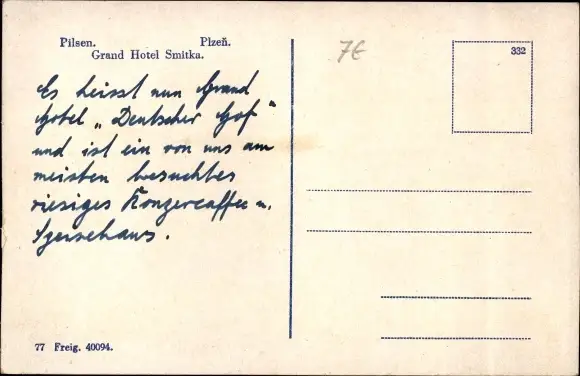 Pilsen. Plzeň.
Grand Hotel Smitka.
7€
332
Es heisst nun Grand
Hotel „Deutscher Hof"
und ist ein von uns am
meisten besuchtes
riesiges Konzercaffee u.
Speisehaus.
77 Freig. 40094.